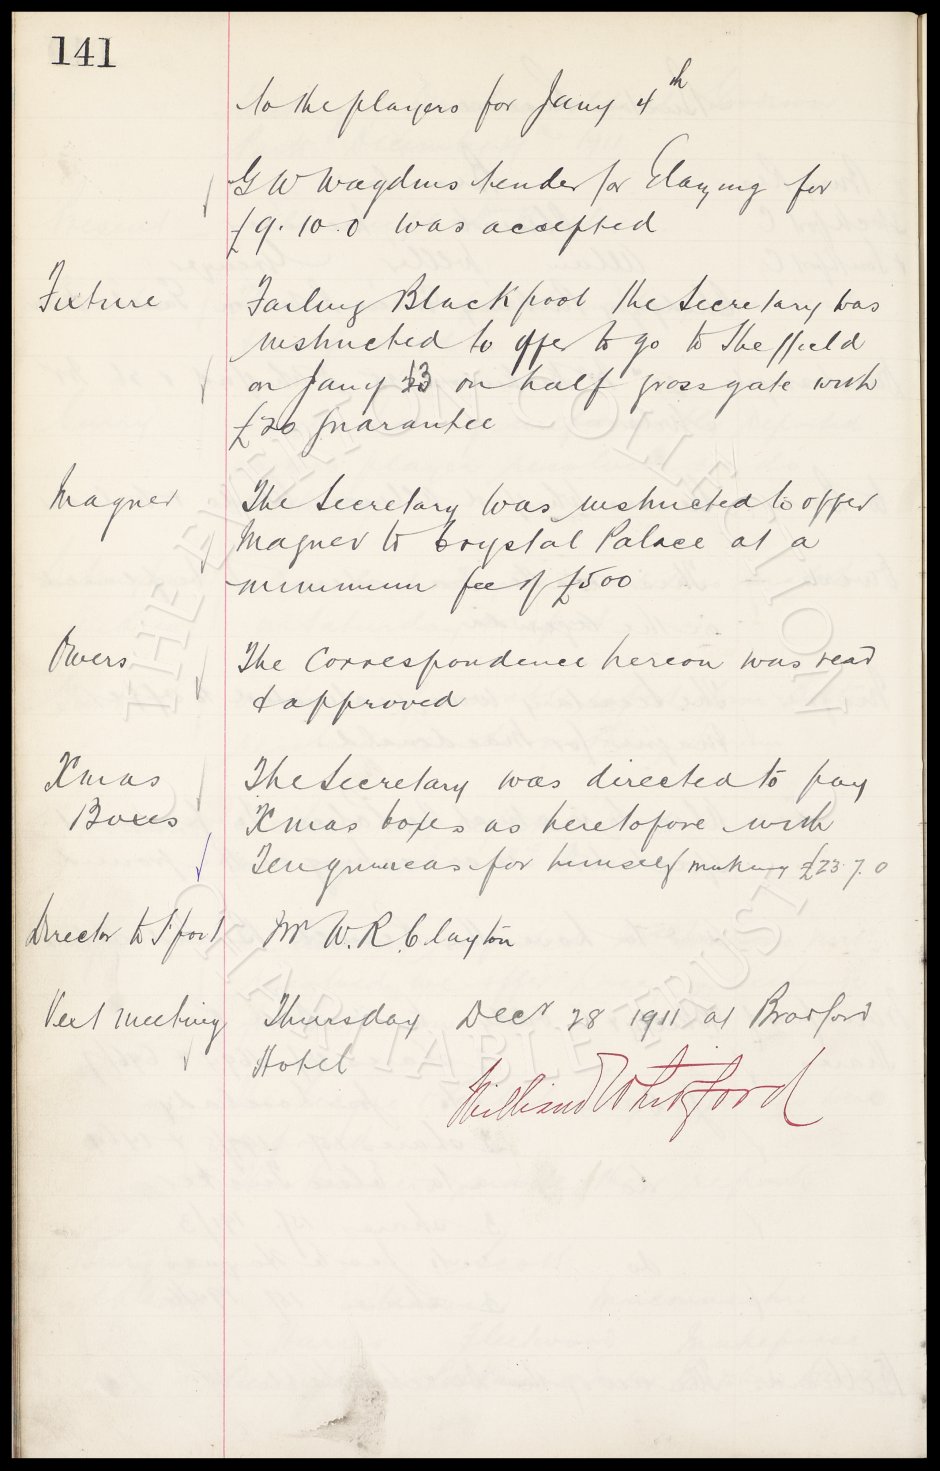 141
to the players for Jany 4th
G W Wagdins tender for Glazing for
£9.10.0 was accepted
Fixture
Failing Blackpool the Secretary was
instructed to offer to go to Sheffield
on Jany 13 on half gross gate with
£20 guarantee
Magner
The Secretary was instructed to offer
Magner to Crystal Palace at a
minimum fee of £500
Owers
The Correspondence hereon was read
& approved
Xmas
Boxes
The Secretary was directed to pay
Xmas boxes as heretofore with
Ten guineas for himself making £23.7.0
Director to S'port
Mr W.R. Clayton
Next meeting
Thursday Decr 28 1911 at Bradford
Hotel
William Whitford
THE EVERTON COLLECTION
CHARITABLE TRUST